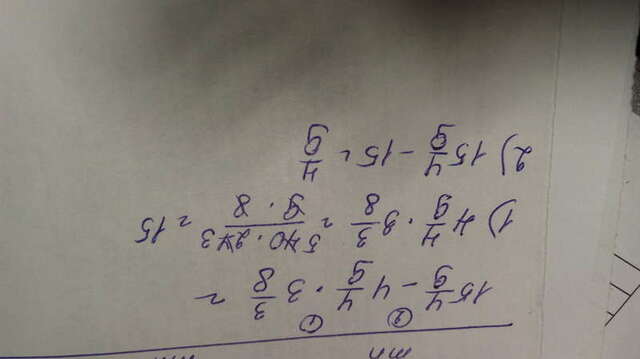 ② ①
15 4/9 - 4 4/9 · 3 3/8 =
1) 4 4/9 · 3 3/8 = 40 · 27 / 9 · 8 = 15
2) 15 4/9 - 15 = 4/9